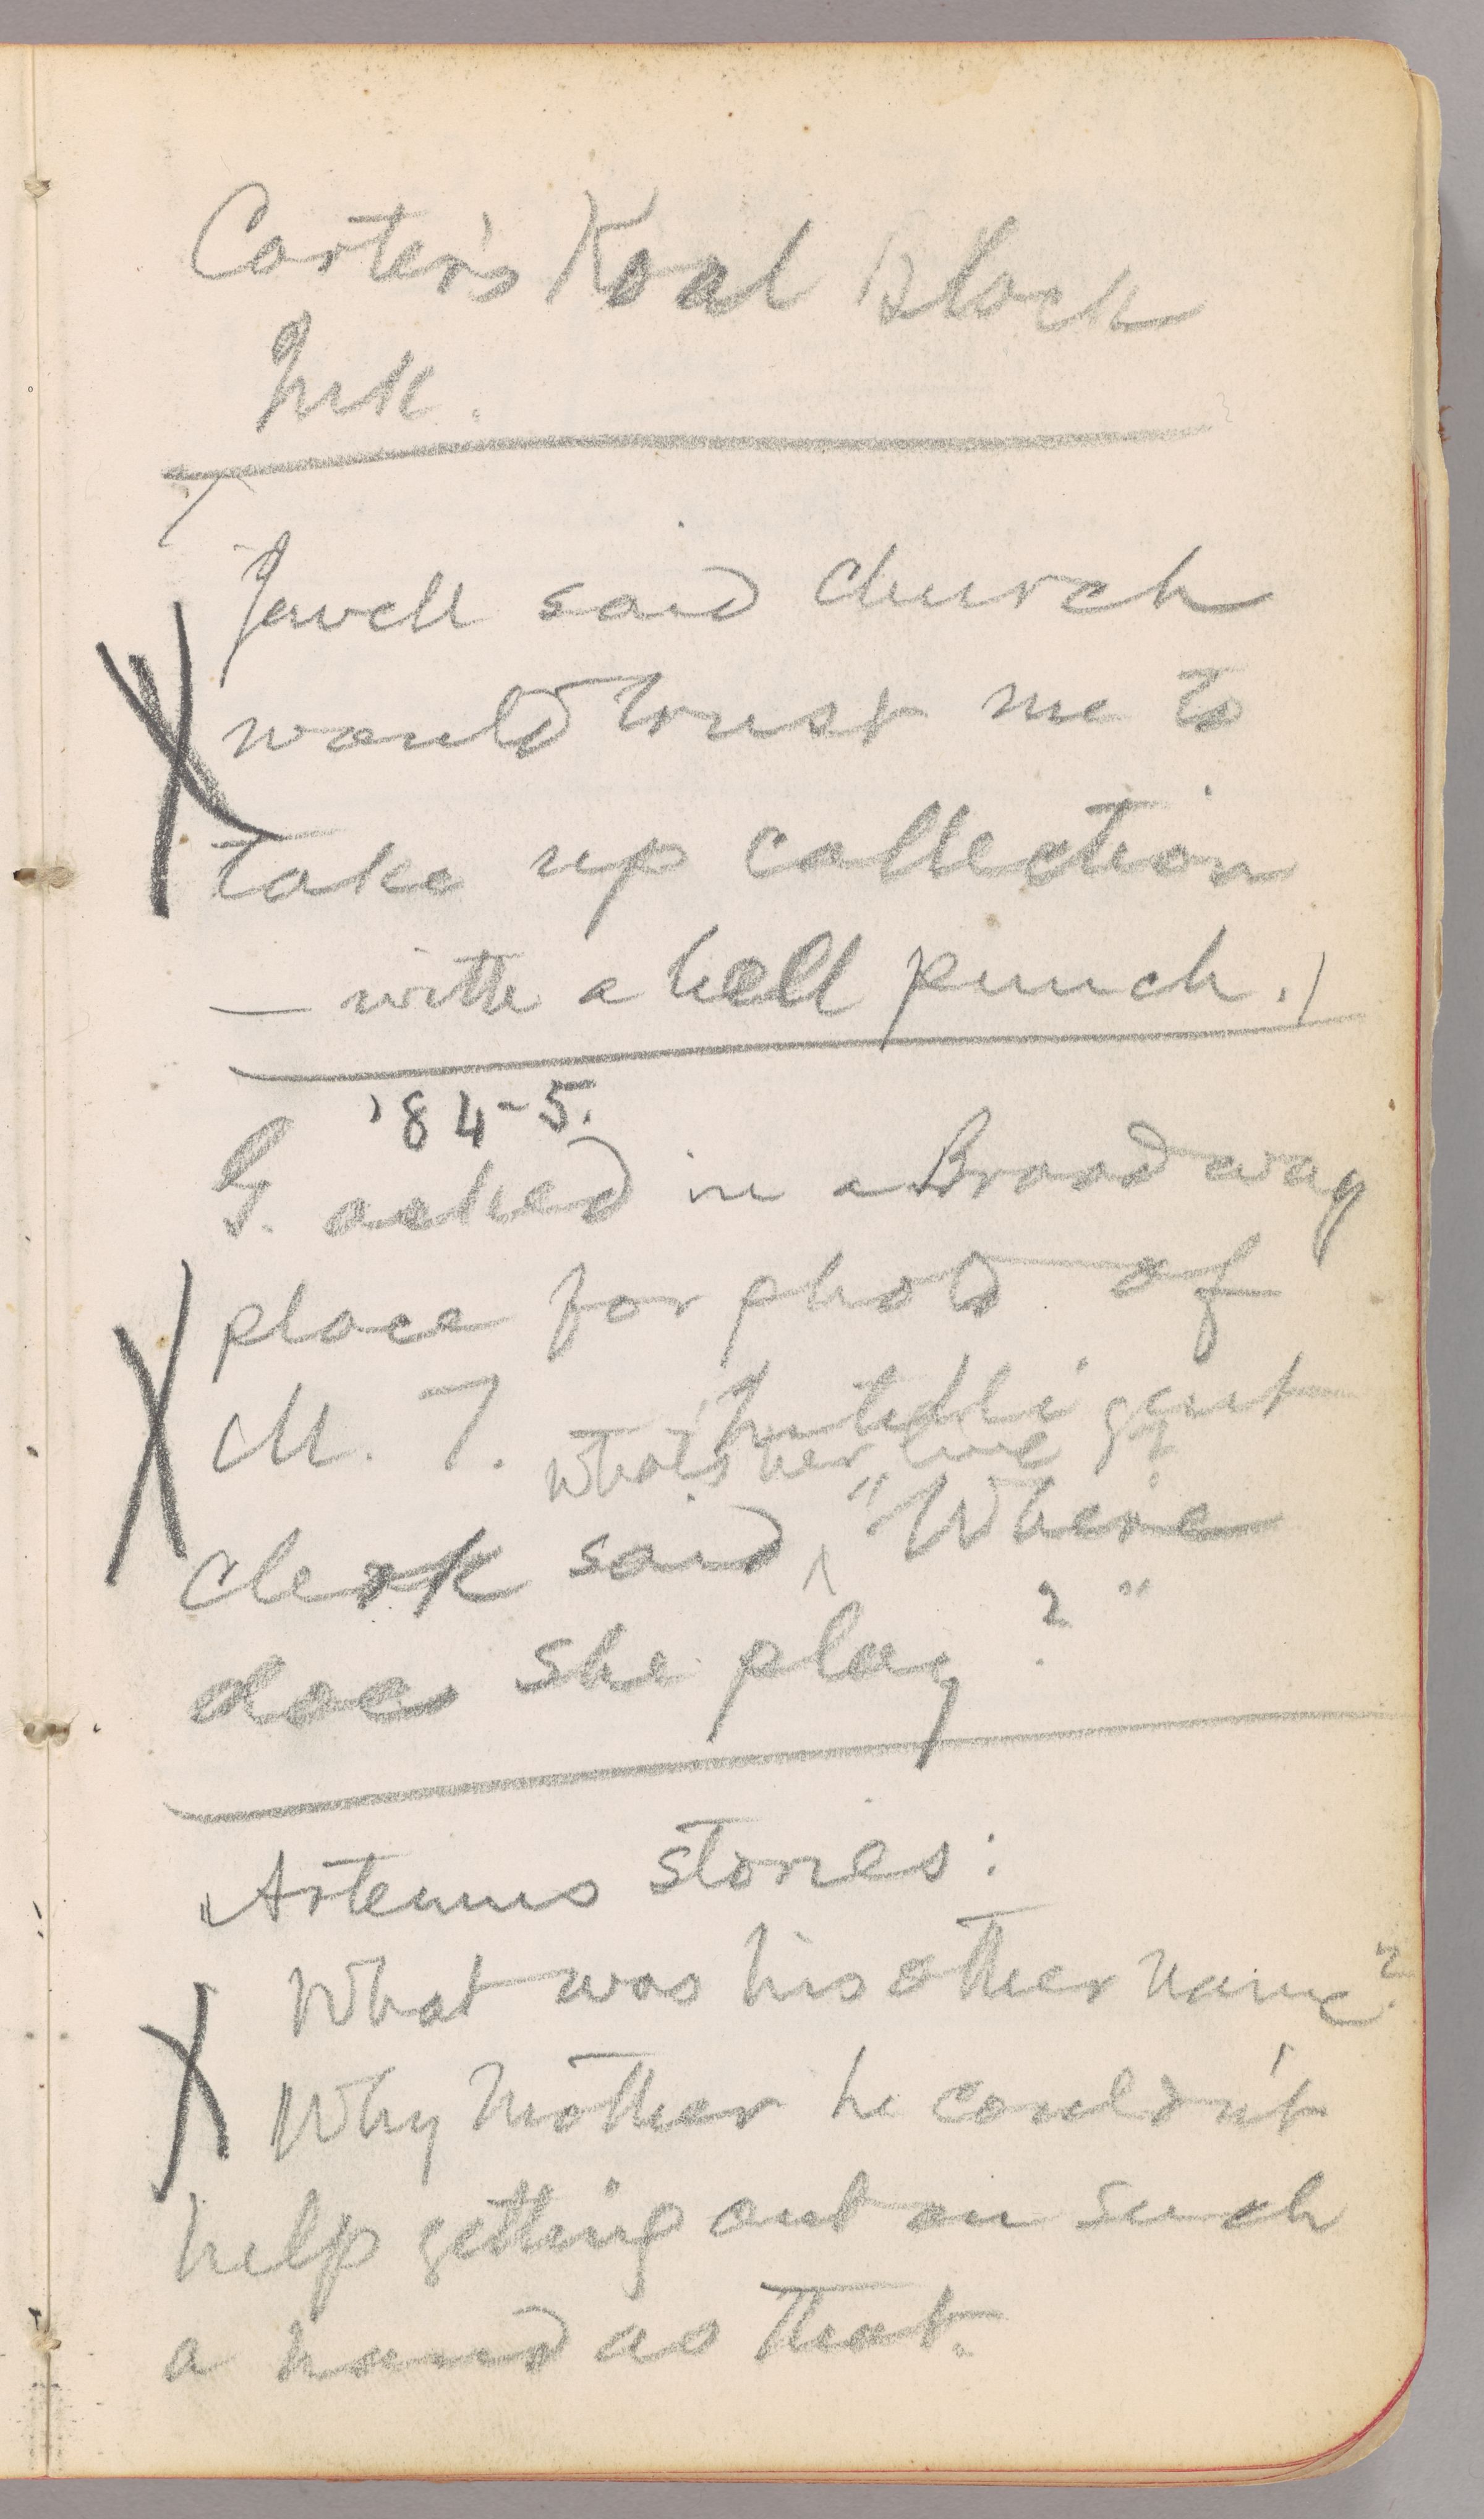 Carter's Koal Black
Ink.
Jewell said church
would trust me to
take up collection
— with a bell punch.
'84-5.
G. asked in a Broadway
place for photo of
M. T. Intelligent
What's her line?
clerk said, "Where
does she play?"
Artemus stories:
What was his other name?
Why Mother he couldn't
help getting out on such
a hand as that.